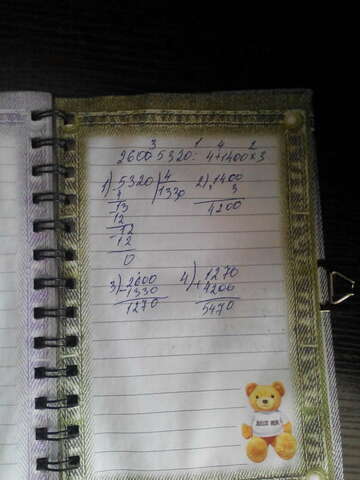 3 1 4 2
2600-5320:4+1400×3
1) 5320 | 4 2) 1400
4 1330 3
13 4200
12
12
12
0
3) 2600 4) 1270
1330 4200
1270 5470